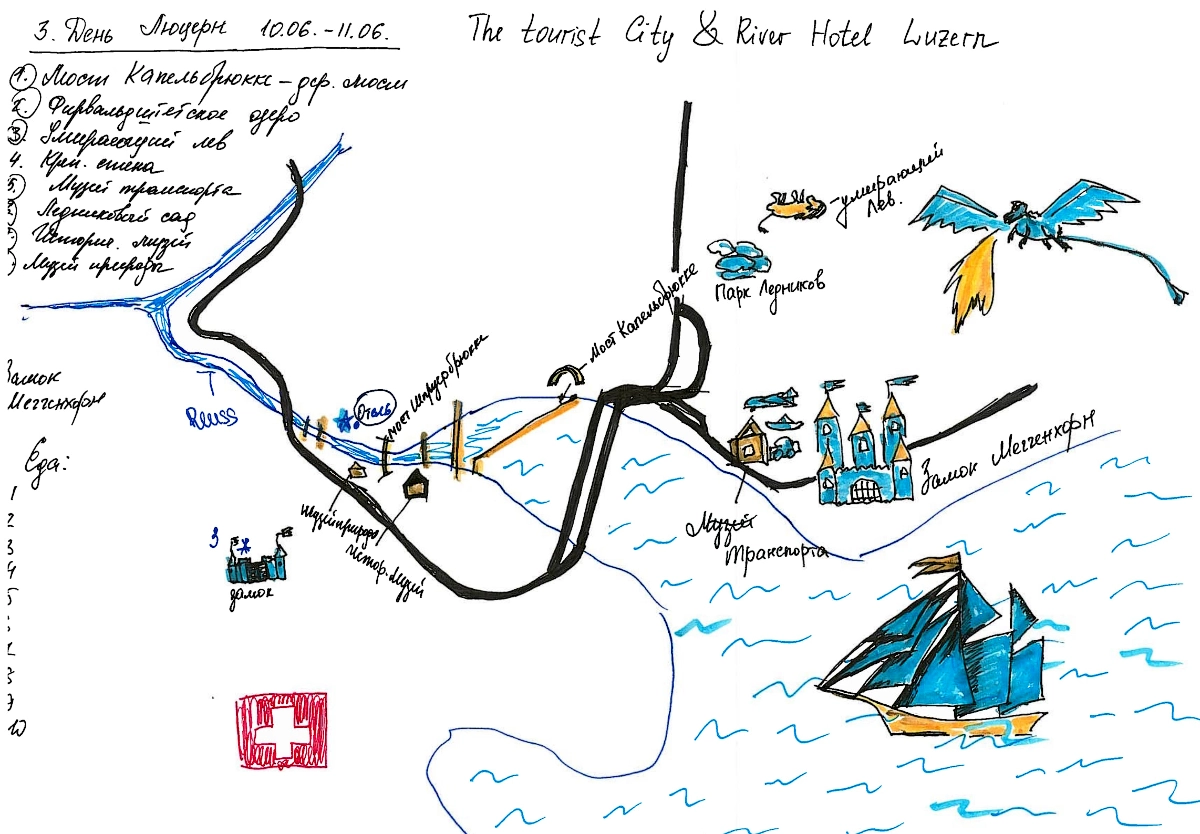 3. День Люцерн 10.06. – 11.06.
The tourist City & River Hotel Luzern
1. Мост Капельбрюкке – дер. мост
2. Фирвальдштетское озеро
3. Умирающий лев
4. Креп. стена
5. Музей транспорта
Ледниковый сад
Историч. музей
Музей природы
Замок
Меггенхорн
Еда:
1
2
3
4
5
8
9
10
умирающий
Лев.
Парк Ледников
Мост Капельбрюкке
Мост Шпроербрюкке
Отель
Reuss
Музей природы
Истор. Музей
Музей
Транспорта
Замок Меггенхорн
3
замок